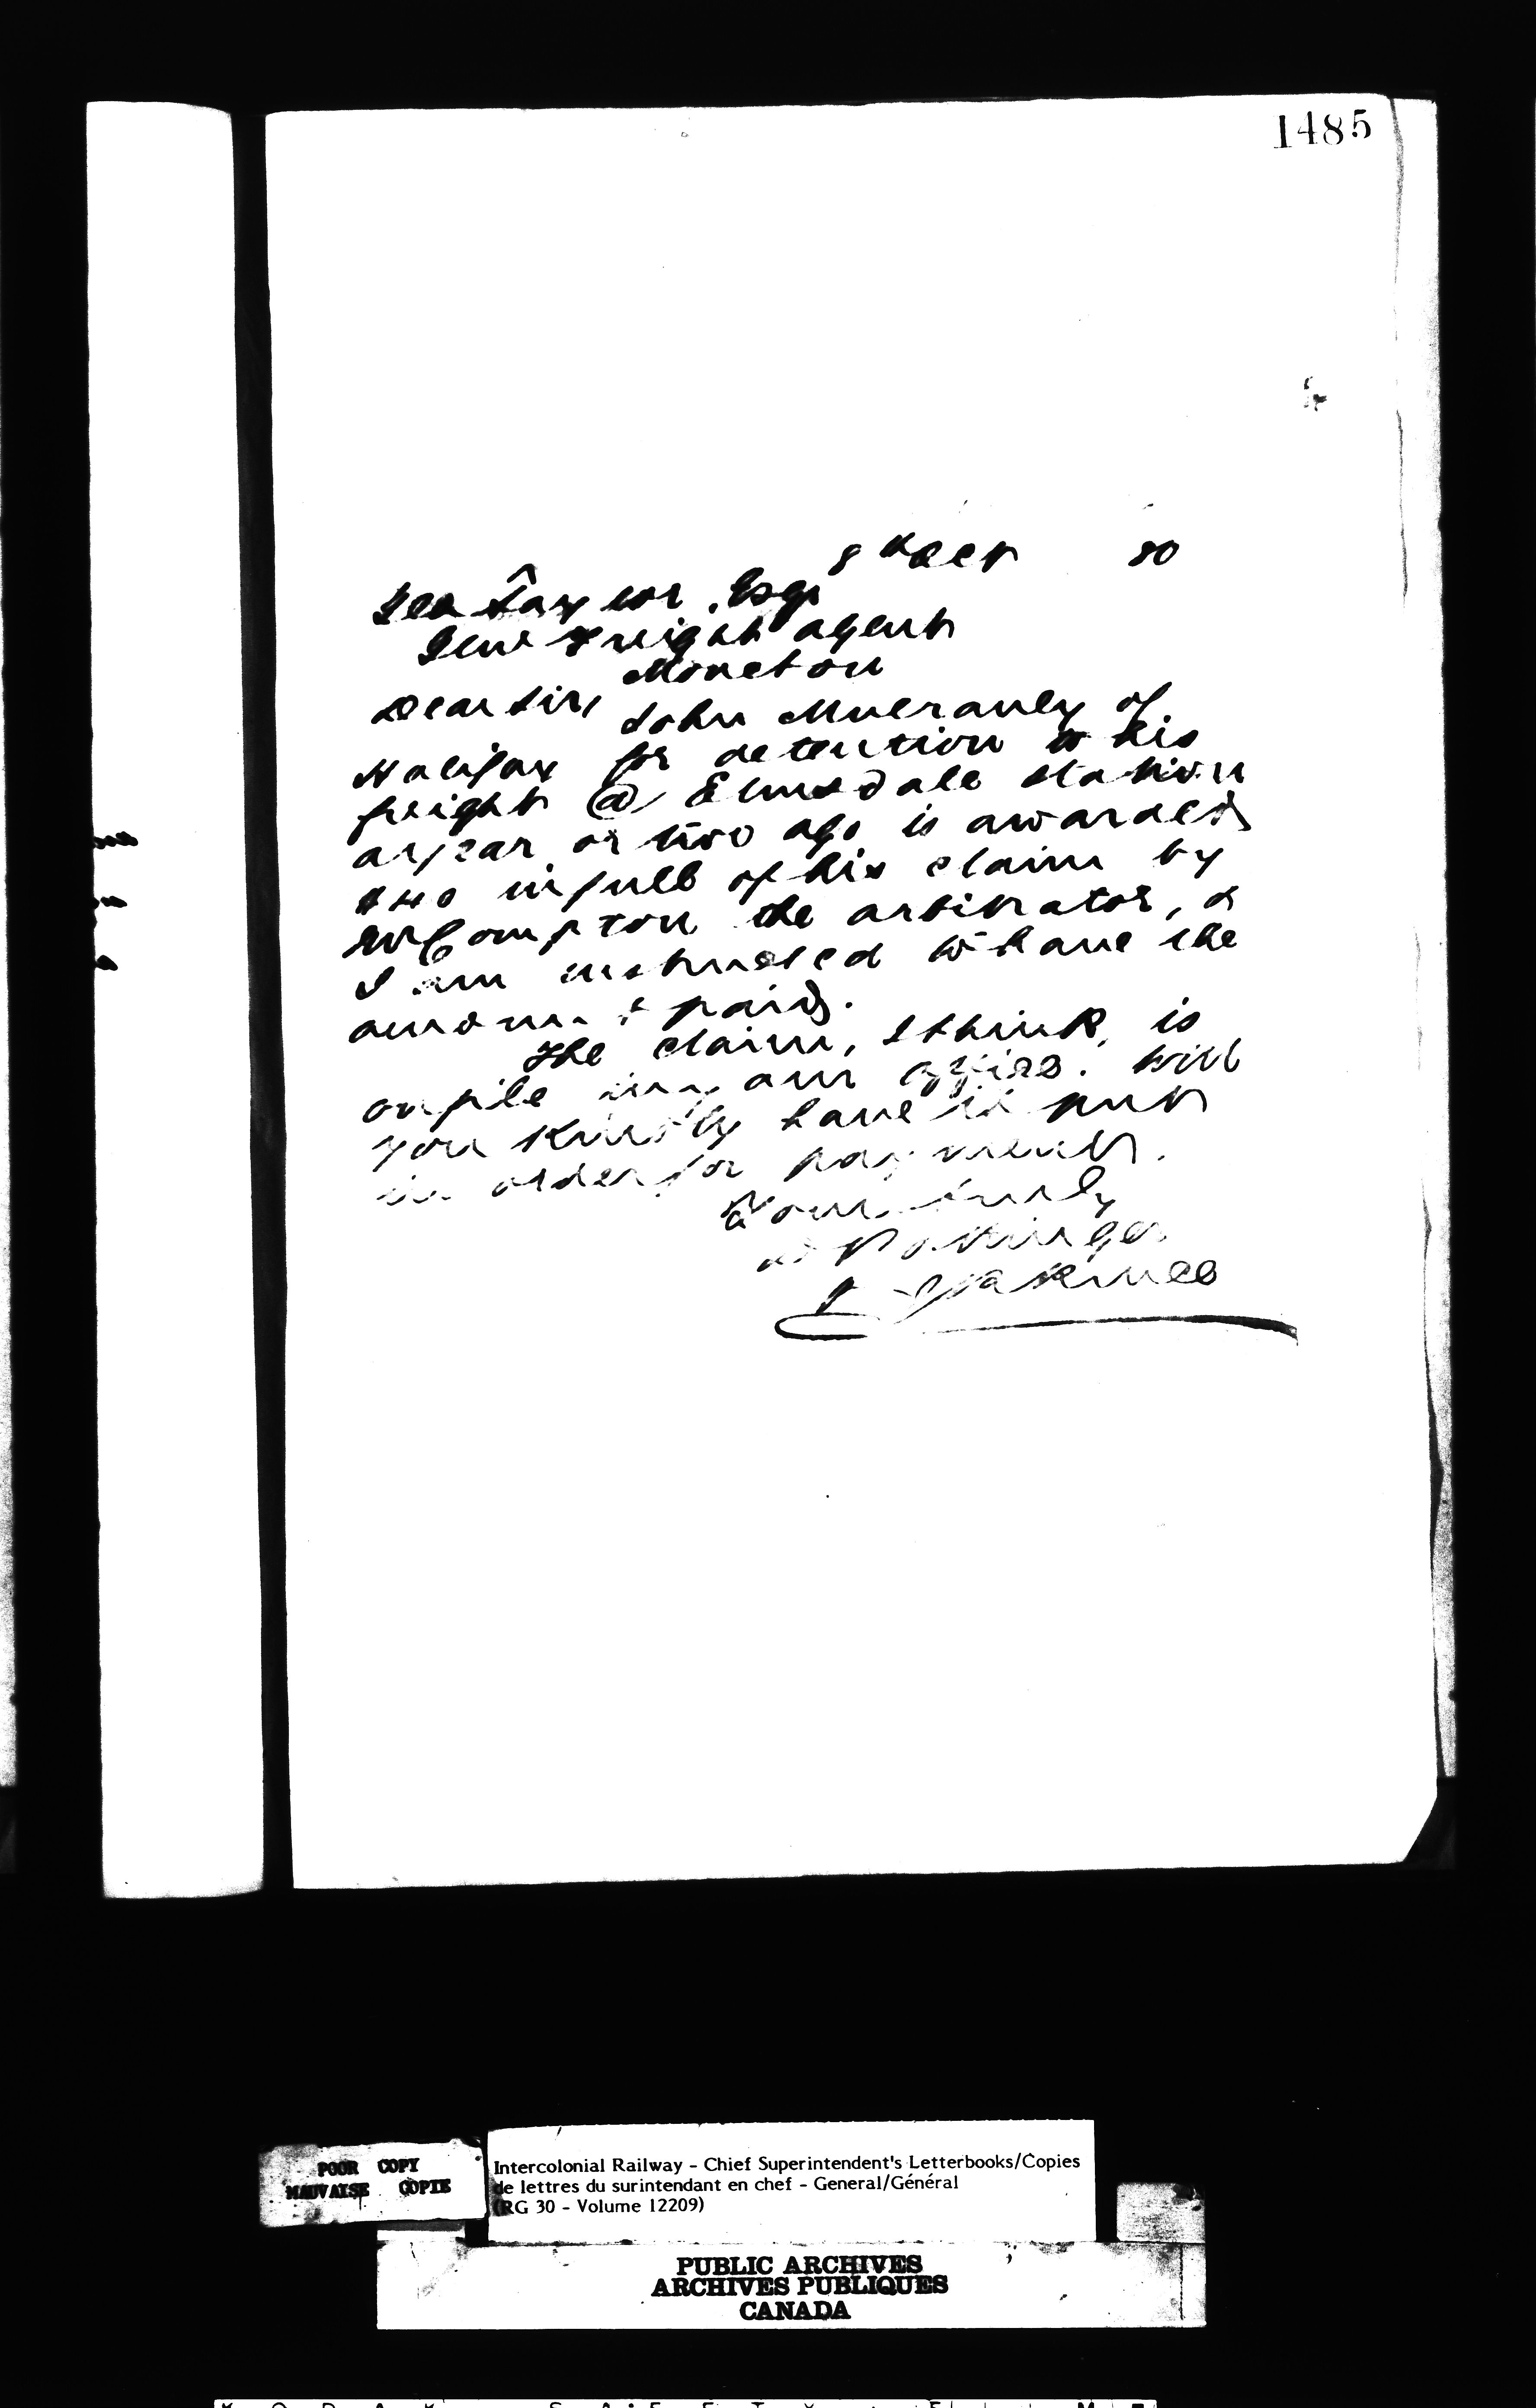 1485
8th Oct 80
Geo Taylor, Esqr
Genl Freight agent
Moncton
Dear Sir,
John Mulcaney of
Halifax for detention to his
freight @ Elmsdale station
a year or two ago is awarded
in full of his claim by
Mr Compton the arbitrator, &
I am instructed to have the
amount paid.
The claim, I think, is
on file in your office. Will
you kindly have it put
in order for payment.
Yours truly
D Pottinger
POOR COPY
MAUVAISE COPIE
Intercolonial Railway - Chief Superintendent's Letterbooks/Copies
de lettres du surintendant en chef - General/Général
(RG 30 - Volume 12209)
PUBLIC ARCHIVES
ARCHIVES PUBLIQUES
CANADA